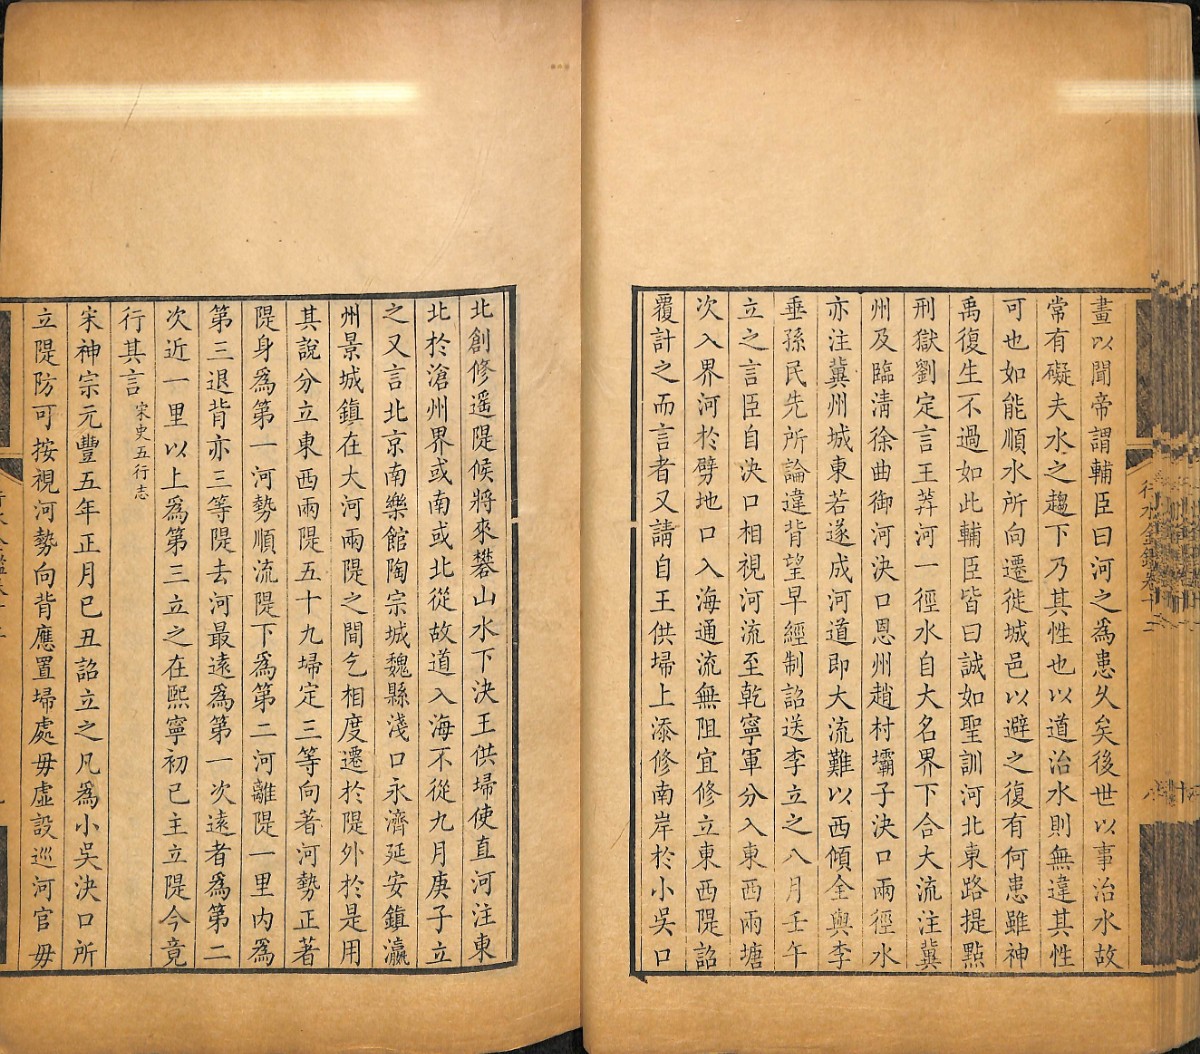 畫以聞帝謂輔臣曰河之為患久矣後世以事治水故
常有礙夫水之趨下乃其性也以道治水則無違其性
可也如能順水所向遷徙城邑以避之復有何患雖神
禹復生不過如此輔臣皆曰誠如聖訓河北東路提點
刑獄劉定言王莽河一徑水自大名界下合大流注冀
州及臨淸徐曲御河決口恩州趙村壩子決口兩徑水
亦注冀州城東若遂成河道即大流難以西傾全與李
垂孫民先所論違背望早經制詔送李立之八月壬午
立之言臣自決口相視河流至乾寧軍分入東西兩塘
次入界河於劈地口入海通流無阻宜修立東西隄詔
覆計之而言者又請自王供埽上添修南岸於小吳口
北創修遥隄候將來礬山水下決王供埽使直河注東
北於滄州界或南或北從故道入海不從九月庚子立
之又言北京南樂館陶宗城魏縣淺口永濟延安鎮瀛
州景城鎮在大河兩隄之閒乞相度遷於隄外於是用
其說分立東西兩隄五十九埽定三等向著河勢正著
隄身爲第一河勢順流隄下爲第二河離隄一里內爲
第三退背亦三等隄去河最遠爲第一次遠者爲第二
次近一里以上爲第三立之在熙寧初已主立隄今竟
行其言宋史五行志
宋神宗元豐五年正月己丑詔立之凡爲小吳決口所
立隄防可按視河勢向背應置埽處毋虛設巡河官毋
行水金鑑卷十二